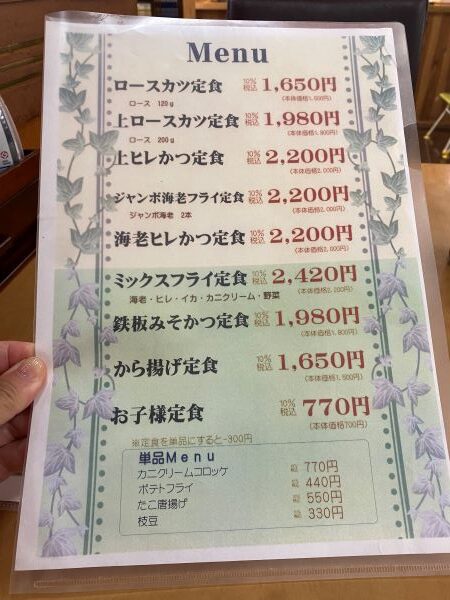 Menu
ロースカツ定食 10%税込 1,650円
ロース 120g (本体価格1,500円)
上ロースカツ定食 10%税込 1,980円
ロース 200g (本体価格1,800円)
上ヒレかつ定食 10%税込 2,200円
(本体価格2,000円)
ジャンボ海老フライ定食 10%税込 2,200円
ジャンボ海老 2本 (本体価格2,000円)
海老ヒレかつ定食 10%税込 2,200円
(本体価格2,000円)
ミックスフライ定食 10%税込 2,420円
海老・ヒレ・イカ・カニクリーム・野菜 (本体価格2,200円)
鉄板みそかつ定食 10%税込 1,980円
(本体価格1,800円)
から揚げ定食 10%税込 1,650円
(本体価格1,500円)
お子様定食 10%税込 770円
(本体価格700円)
※定食を単品にすると-300円
単品Menu
カニクリームコロッケ 770円
ポテトフライ 440円
たこ唐揚げ 550円
枝豆 330円